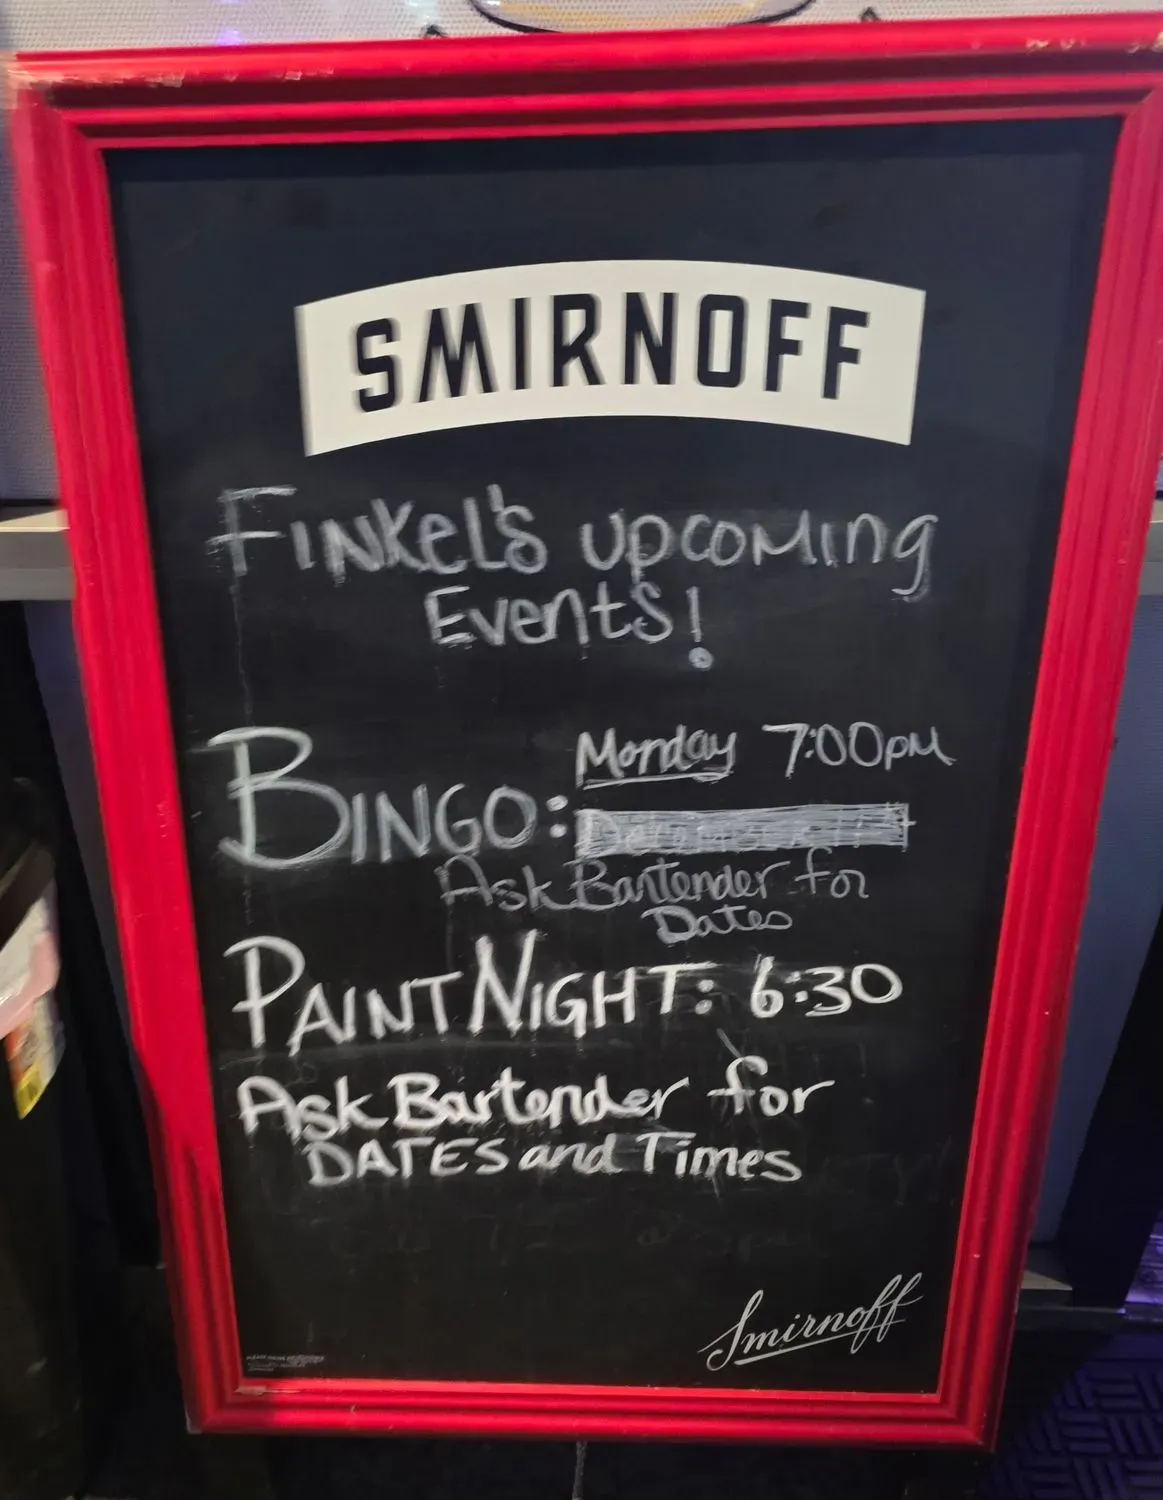 SMIRNOFF
FINKEL'S UPCOMING
EVENTS!
Monday 7:00PM
BINGO:
Ask Bartender for
Dates
PAINT NIGHT: 6:30
Ask Bartender for
DATES and Times
Smirnoff